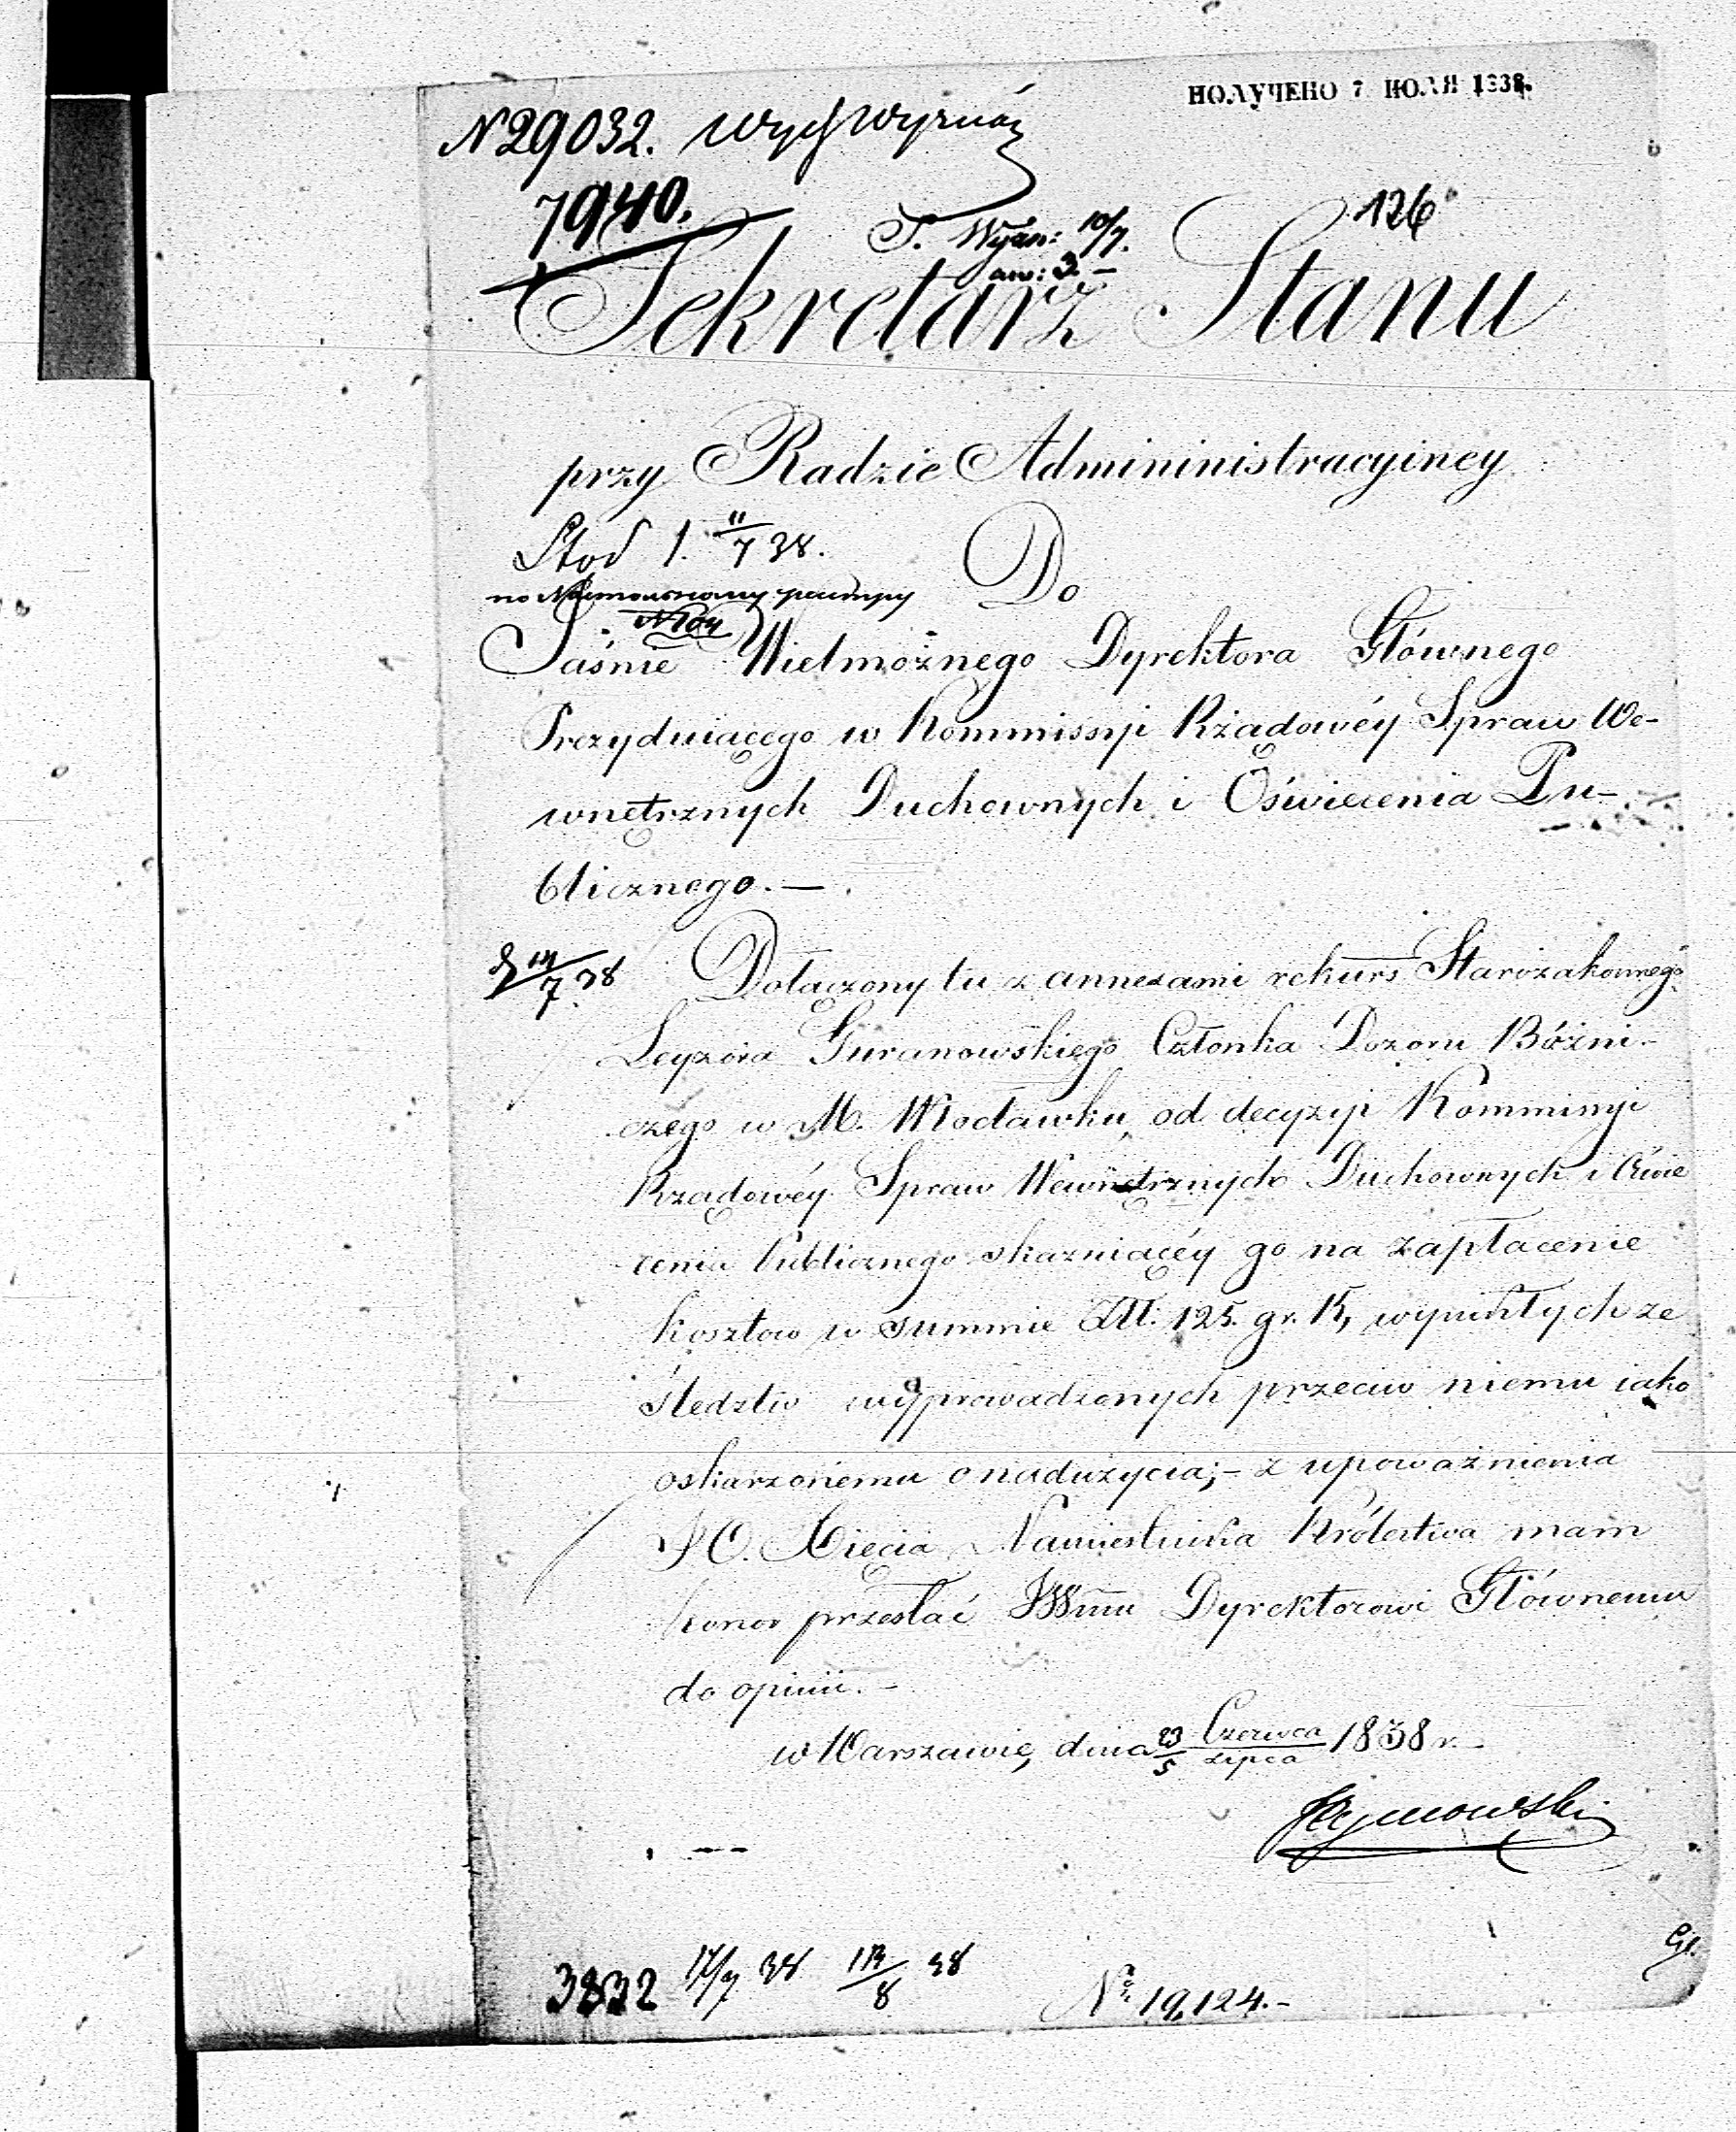 ПОЛУЧЕНО 7 ІЮЛЯ 1838.
N 29032.
7940.
126
10/7.
Sekretarz Stanu
przy Radzie Admininistracyiney
11/7 38.
Do
Jaśnie Wielmożnego Dyrektora Głównego
Prezyduiącego w Kommissyi Rządowéy Spraw We-
wnętrznych Duchownych i Oświecenia Pu-
blicznego.—
14/7 38
Dołączony tu z annexami rekurs Starozakonnego
Leyzora Guranowskiego Członka Dozoru Bóźni-
czego w M. Włocławku, od decyzyi Kommissyi
Rządowéy Spraw Wewnętrznych Duchownych i Oświe
cenia Publicznego skazuiącéy go na zapłacenie
kosztów w summie Złł. 125. gr. 15, wynikłych ze
śledztw wyprowadzonych przeciw niemu iako
oskarżonemu o nadużycia;- z upoważnienia
JO. Xięcia Namiestnika Królestwa mam
honor przesłać JWmu Dyrektorowi Głównemu
do opinii.-
w Warszawie, dnia 23/5 Czerwca/Lipca 1838 r.-
3832 17/7 38 38
No. 19,124.-